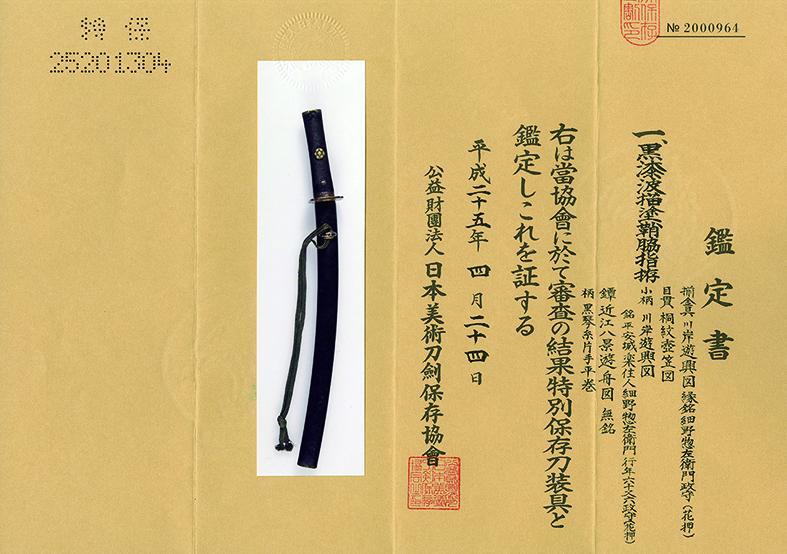 № 2000964
鑑定書
一、黒漆波描塗鞘脇指拵
揃金具 川岸遊興図 縁銘 細野惣左衛門政守(花押)
目貫 桐紋壺笠図
小柄 川岸遊興図
銘 平安城楽住人細野惣左衛門 行年六十又六政守(花押)
鐔 近江八景遊舟図 無銘
柄 黒琴糸片手平巻
右は當協會に於て審査の結果特別保存刀装具と
鑑定しこれを証する
平成二十五年 四月 二十四日
公益財團法人 日本美術刀劍保存協會
特保
25201304